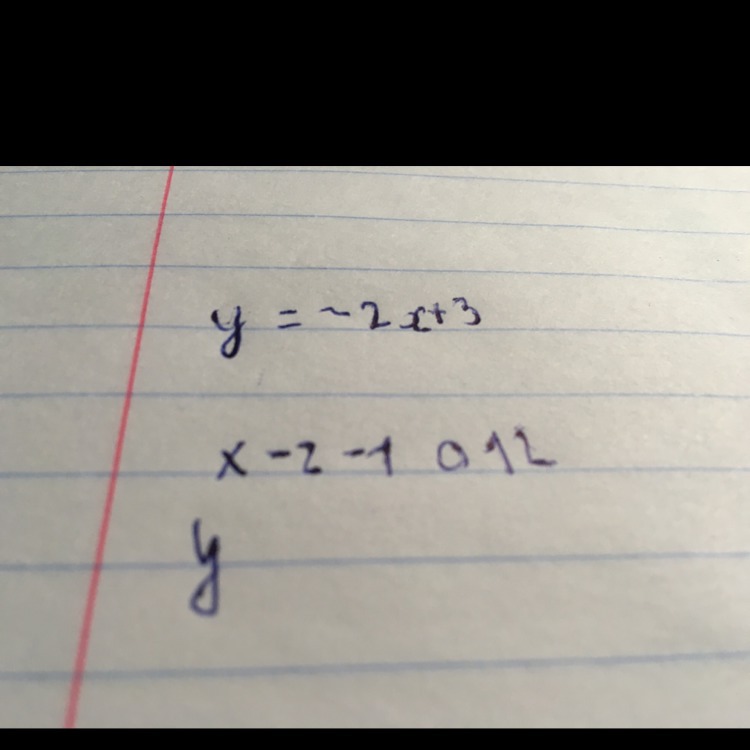 y = -2x+3
x -2 -1 0 1 2
y